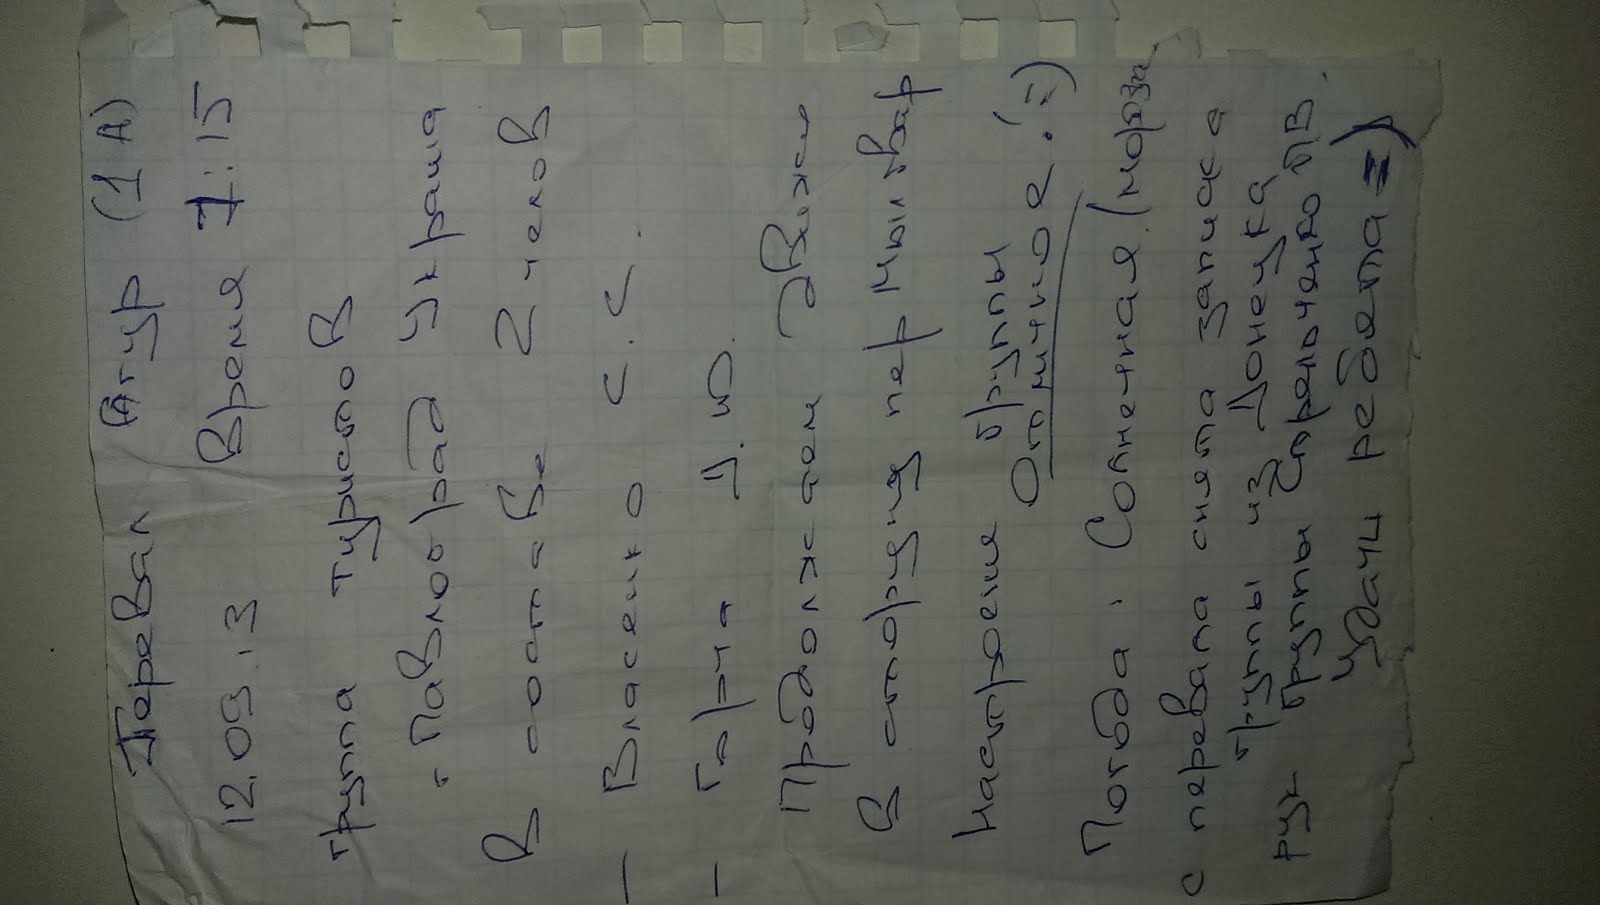 Перевал Агур (1А)
12.09.13 Время 7:15
группа туристов
"Павлоград Украина
В составе 2 челов
— Власенко С.С.
— Гарча
Продолжаем движен
В сторону пер Мылгвар
Настроение группы
Отличное! =)
Погода: Солнечная. (мороз
с перевала снята записка
группы из Донецка
рук группы Стрельченко П.В.
удачи ребята =)